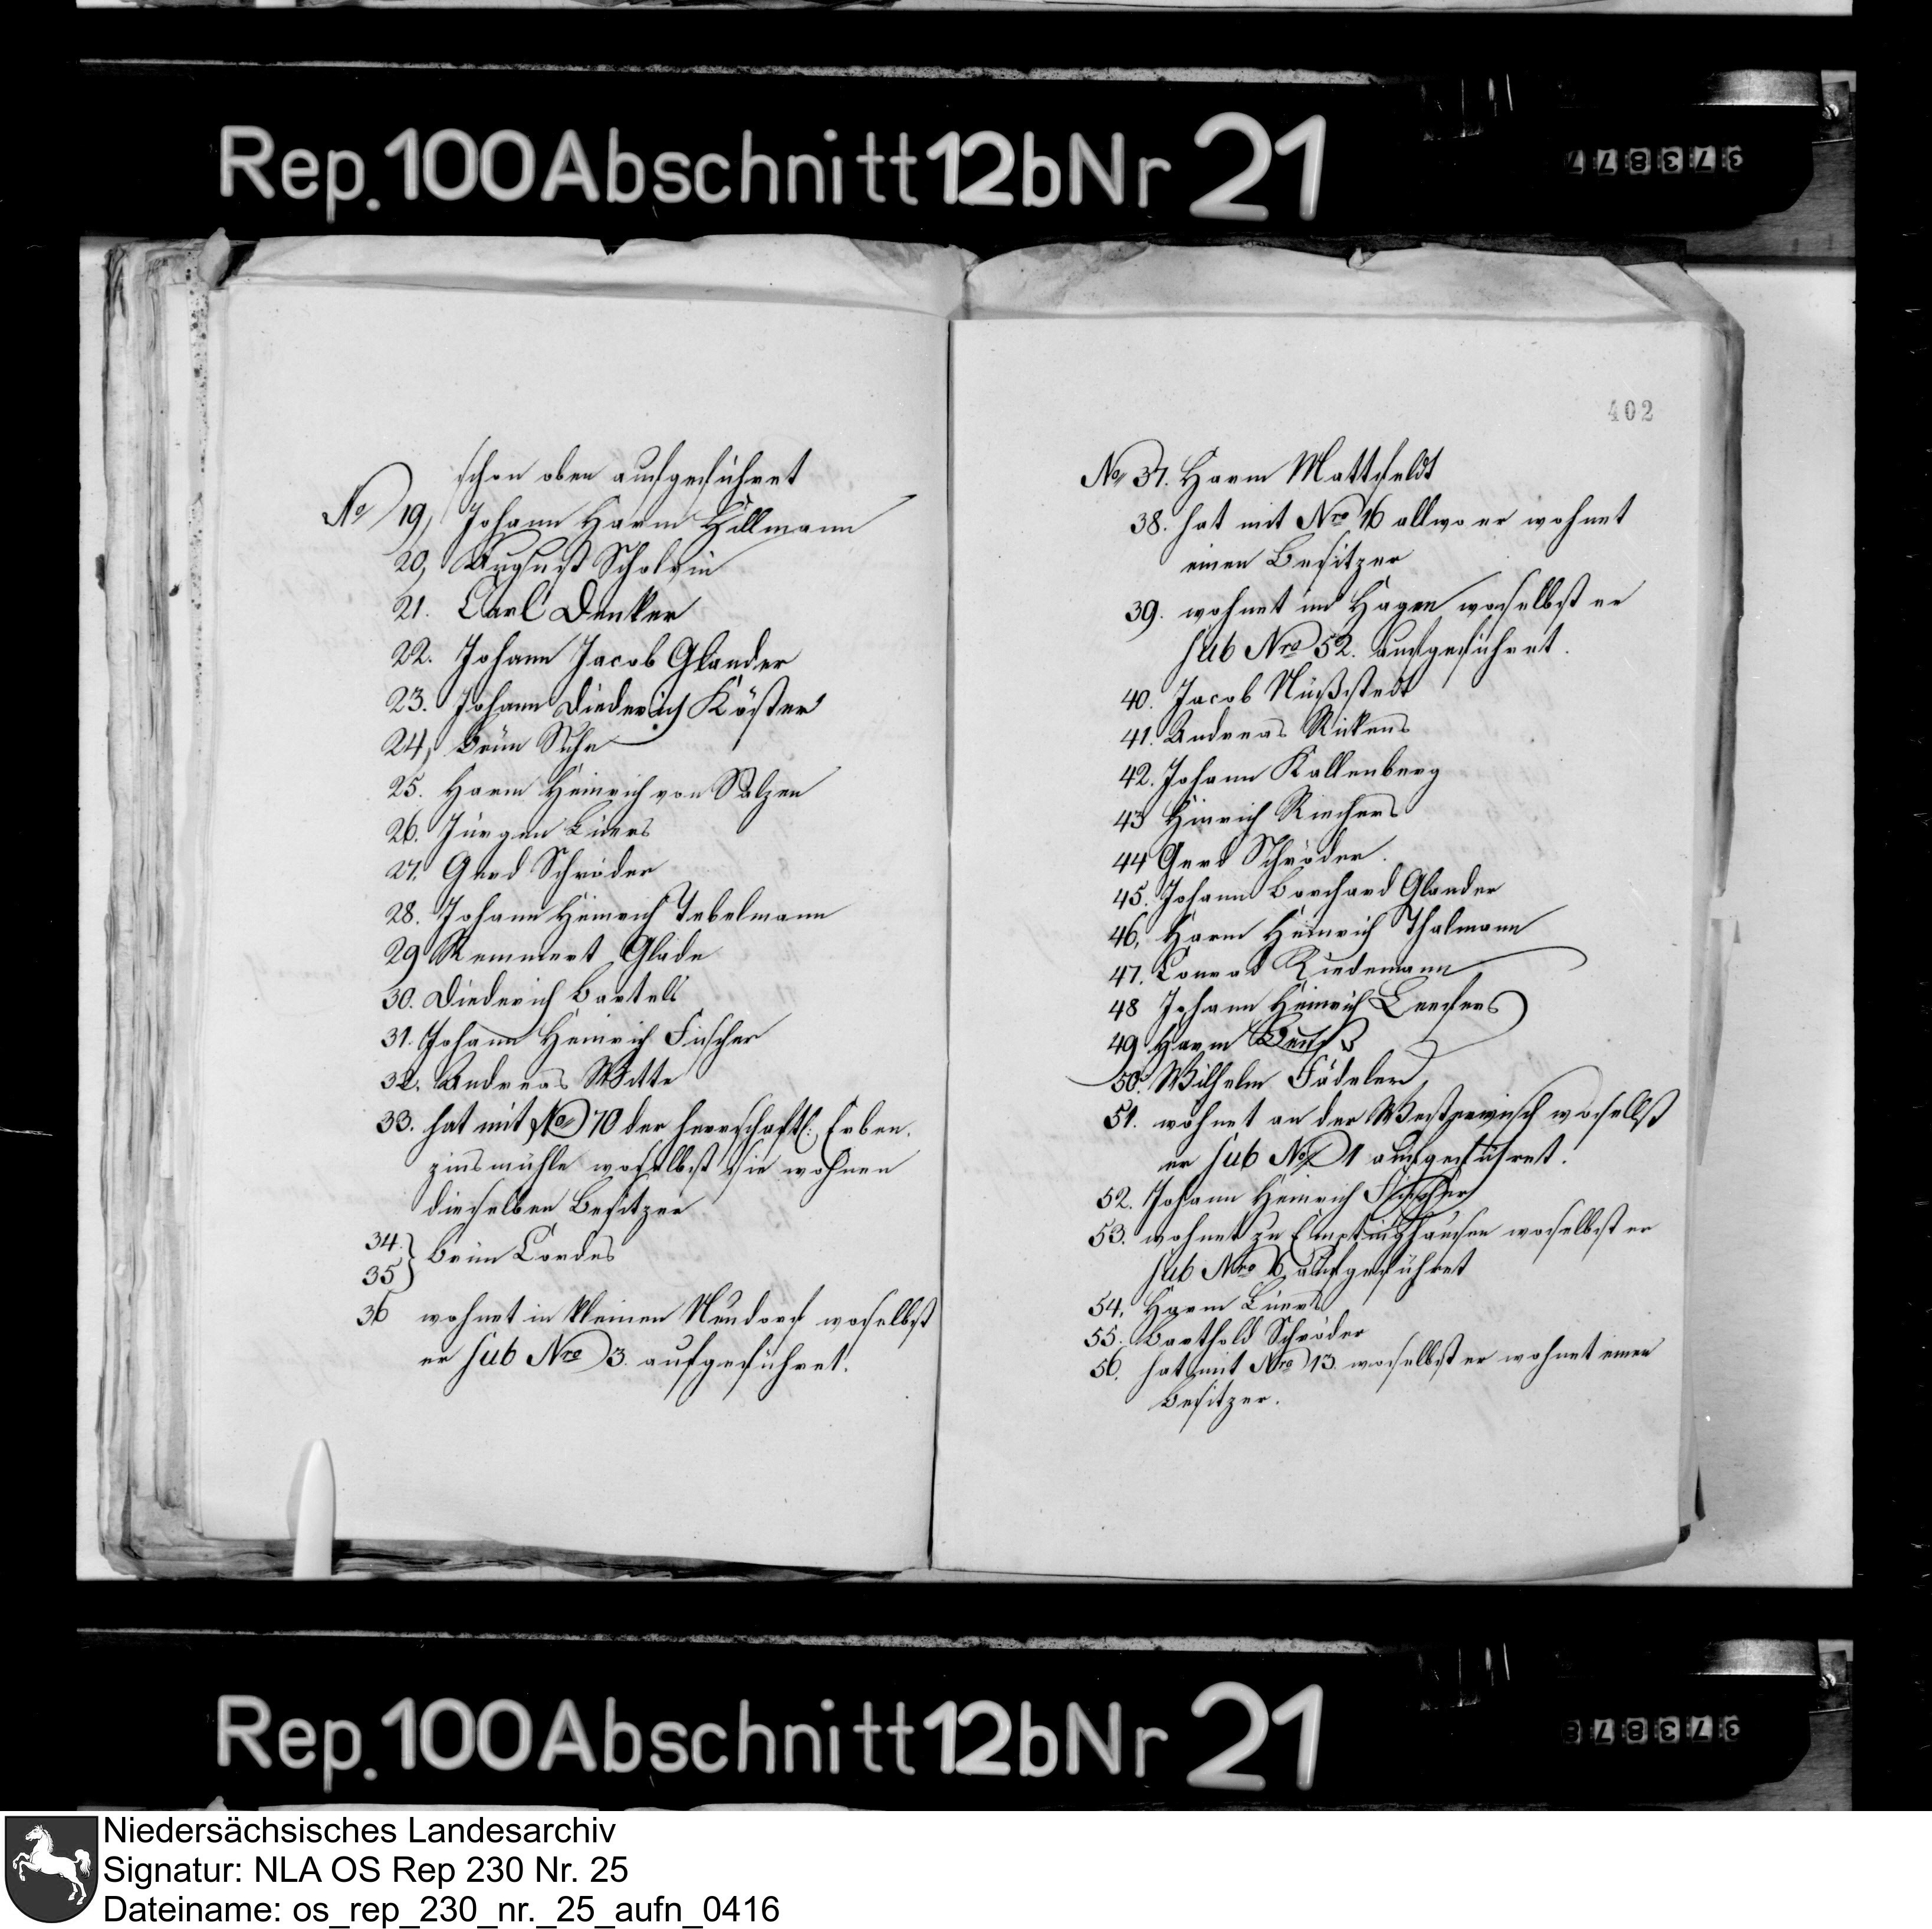 Rep.100Abschnitt12bNr 21
373877
schon oben aufgeführet
No 19, Johann Harm Hillmann
20, August Scholvin
21. Carl Denker
22. Johann Jacob Glander
23. Johann Diederich Köster
24, Brün Suhr
25. Harm Heinrich von Salzen
26. Jürgen Lüers
27. Gerd Schröder
28. Johann Heinrich Tebelmann
29 Remmert Glade
30. Diederich Bartels
31. Johann Heinrich Fischer
32. Andreas Witte
33. hat mit No 70 der herrschaftl: Erben.
zinsmühle woselbst sie wohnen
dieselben Besitzer
34.
35 } Brün Cordes
36 wohnet in kleinen Neudorf woselbst
er sub Nro 3. aufgeführet.
402
No 37. Harm Mattfeldt
38. hat mit Nro 16 allwo er wohnet
einen Besitzer
39. wohnet im Hagen woselbst er
sub Nro 52. aufgeführet.
40. Jacob Nüßstedt
41. Andreas Rickens
42. Johann Kallenberg
43 Hinrich Riechers
44 Gerd Schröder.
45. Johann Borchard Glander
46, Harm Heinrich Thalmann
47. Conrad Riedemann
48 Johann Heinrich
49 Harm
50. Wilhelm Fädeler
51. wohnet an der Westerwisch woselbst
er sub No. 1 aufgeführet.
52. Johann Heinrich Fischer
53. wohnet zu Emptinghausen woselbst er
sub Nro 6 aufgeführet
54, Harm Lüers
55. Barthold Schröder
56. hat mit Nro 13. woselbst er wohnet einen
Besitzer.
Rep.100Abschnitt12bNr 21
373878
Niedersächsisches Landesarchiv
Signatur: NLA OS Rep 230 Nr. 25
Dateiname: os_rep_230_nr._25_aufn_0416